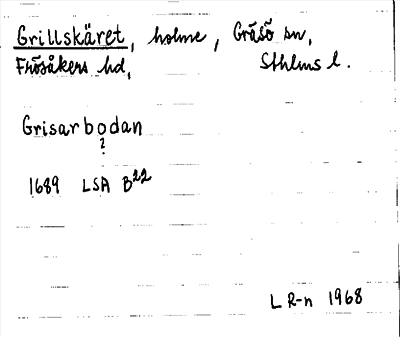 Grillskäret, holme, Gräsö sn,
Frösåkers hd, Sthlms l.
Grisarbodan
?
1689 LSA B22
L R-n 1968